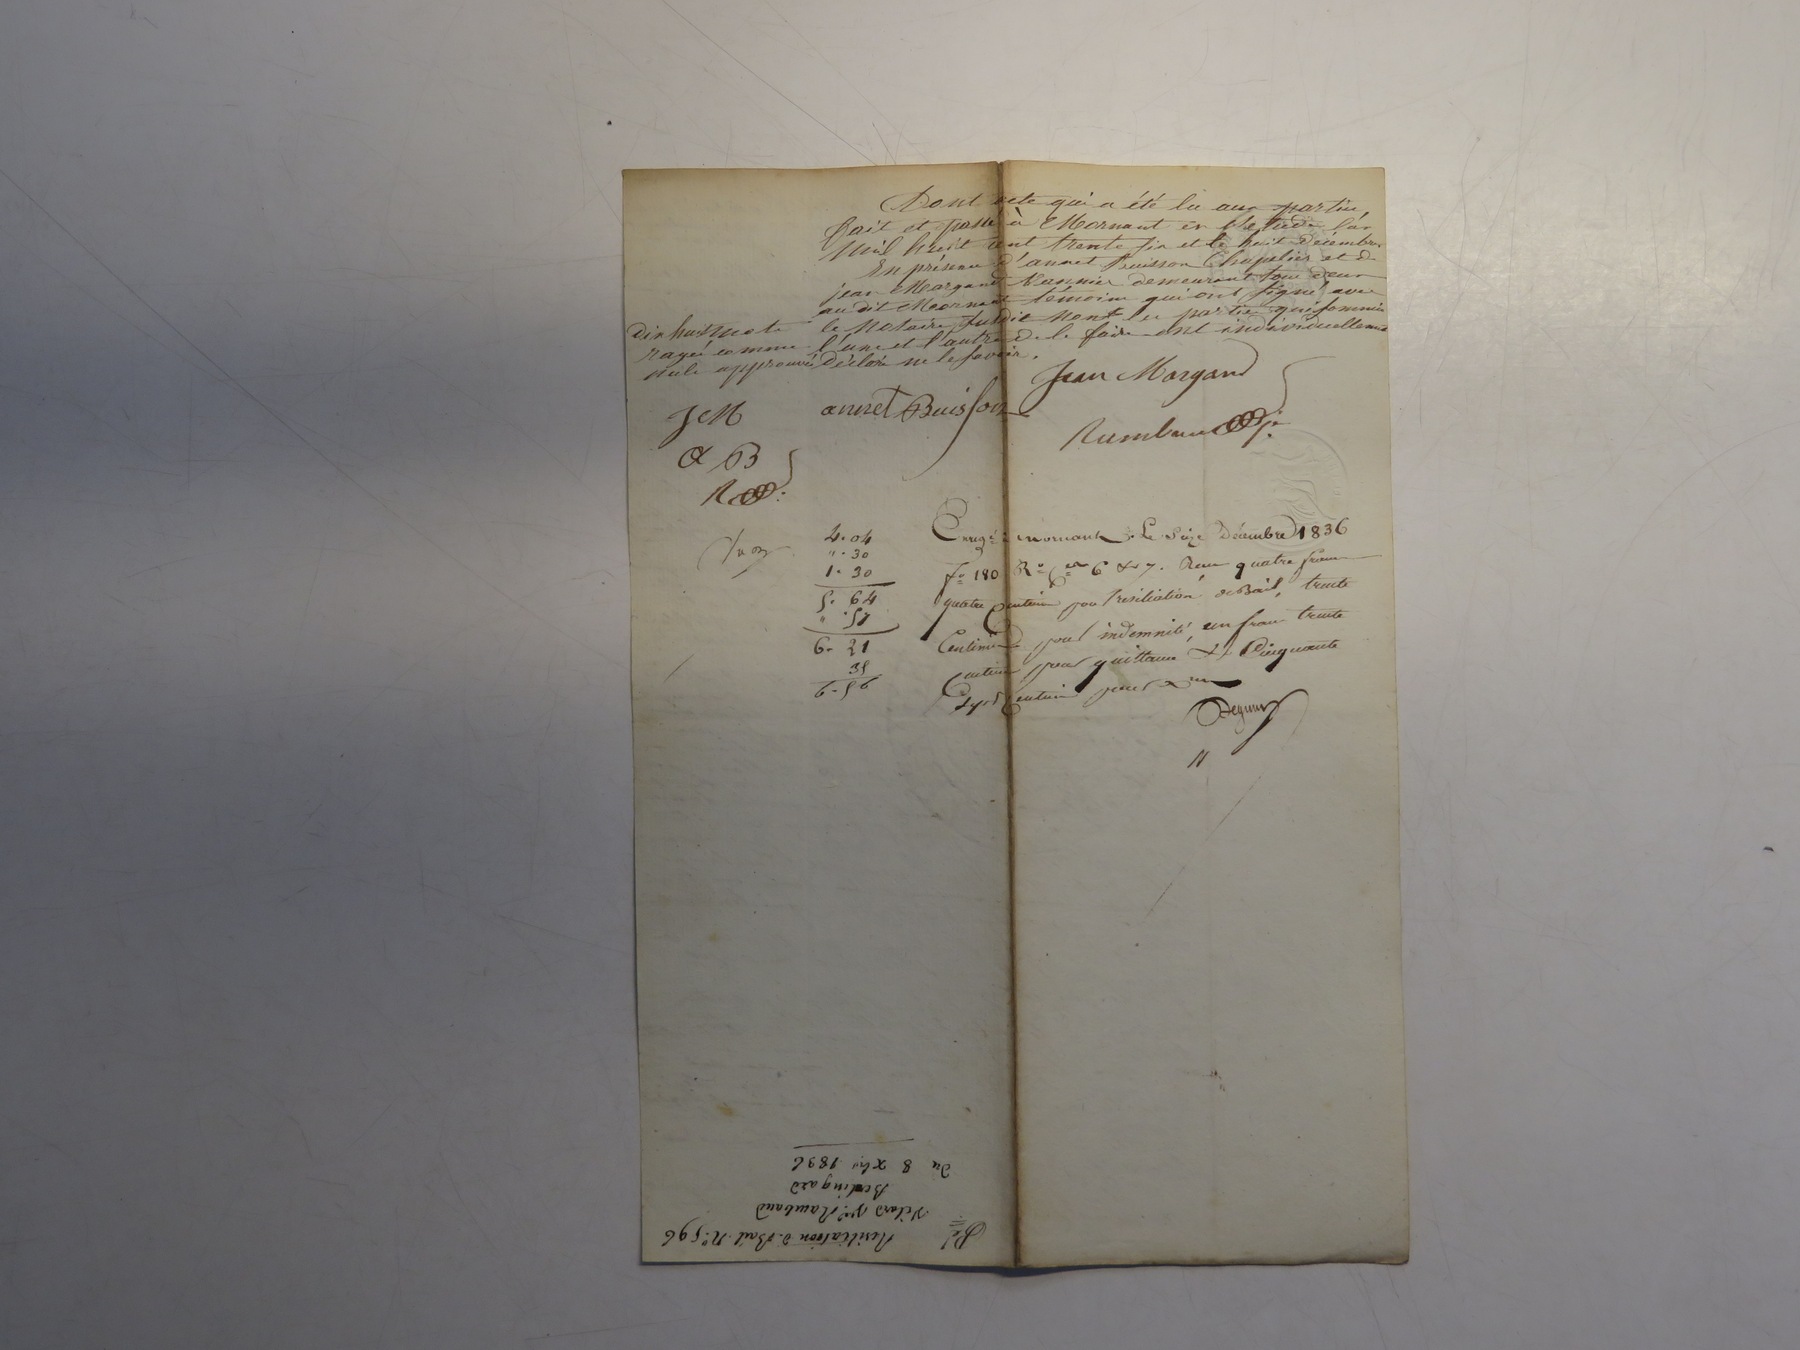 Dont acte qui a été lu aux parties,
fait et passé à Mornant en l'étude l'an
Mil huit cent trente six et le huit décembre
En présence d'annet Buisson Chapelier et de
jean Margand Vannier demeurant tous deux
audit Mornant témoins qui ont signé avec
le Notaire susdit non les parties qui sommées
l'une et l'autre de le faire ont individuellement
déclaré ne le savoir.
dix huit mots
rayés comme
nuls approuvés
Jean Margand
JM annet Buisson
Rambaud
A B
R
4. 04
" . 30
1. 30
5. 64
" . 57
6. 21
35
6. 56
Enregé à mornant Le Seize Décembre 1836
fo 180 Ro Ces 6 & 7. Reçu quatre francs
quatre centimes pour résiliation de Bail, trente
Centimes pour indemnité, un franc trente
Centimes pour quittance & Cinquante
Sept Centimes pour Xme
Rel
Résiliation de Bail No 596
Vilard Rambaud
Berlingard
Du 8 Xbre 1836